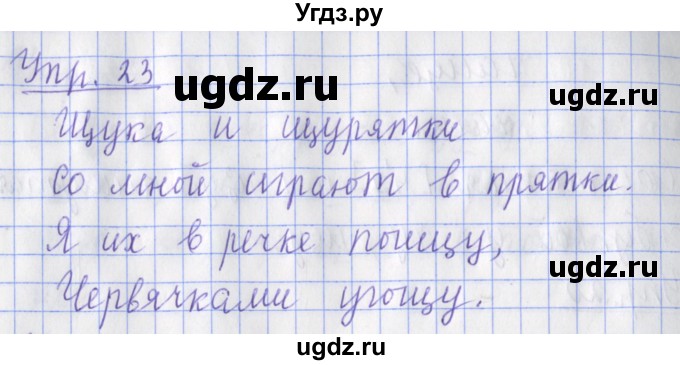 Угдз.ру
Упр. 23
ugdz.ru
ugdz.ru
Щука и щурятки
Со мной играют в прятки.
Я их в речке поищу,
ugdz.ru
Червячками угощу.
ugdz.ru